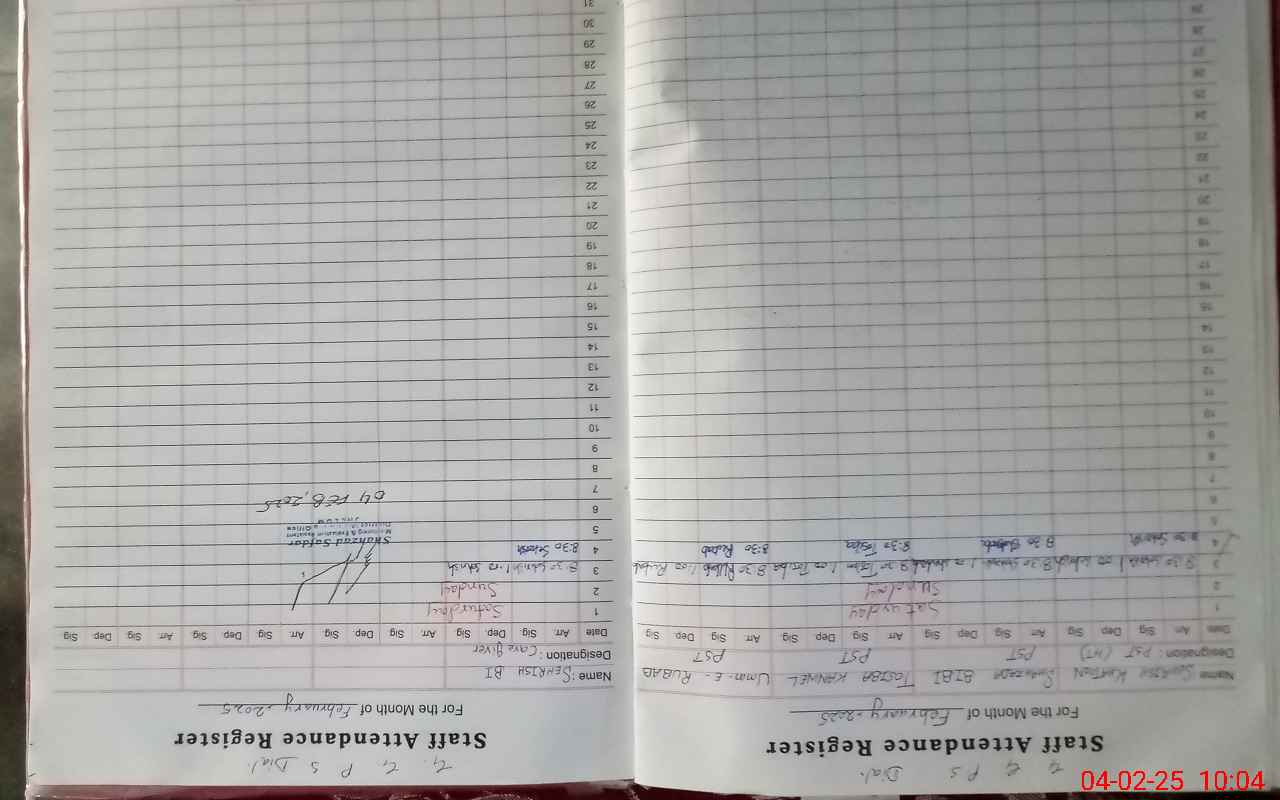 G. G. P. S Dial.
Staff Attendance Register
For the Month of February-2025
Name SEHRISH KHATOON SHAHZADA BIBI TOSIBA KANWEL Umm-E-RUBAB
Designation: PST (HT) PST PST PST
Date Arr Sig Dep Sig Arr Sig Dep Sig Arr Sig Dep Sig Arr Sig Dep Sig
1 Saturday
2 Sunday
3 8:30 1:00 8:30 8:30 1:00 8:30 Rubab 1:00 Rubab
4 8:30 8:30 8:30 8:30 Rubab
5
6
7
8
9
10
11
12
13
14
15
16
17
18
19
20
21
22
23
24
25
26
27
28
29
G. G. P S Dial.
Staff Attendance Register
For the Month of February-2025
Name: SEHRISH BI
Designation: Care giver
Date Arr Sig Dep Sig Arr Sig Dep Sig Arr Sig Dep Sig Arr Sig Dep Sig
1 Saturday
2 Sunday
3 8:30 Sehrish 1:00 Sehrish
4 8:30 Sehrish
Shahzad Safdar
Monitoring & Evaluation Assistant
5
6
04 FEB, 2025
7
8
9
10
11
12
13
14
15
16
17
18
19
20
21
22
23
24
25
26
27
28
29
30
31
04-02-25 10:04